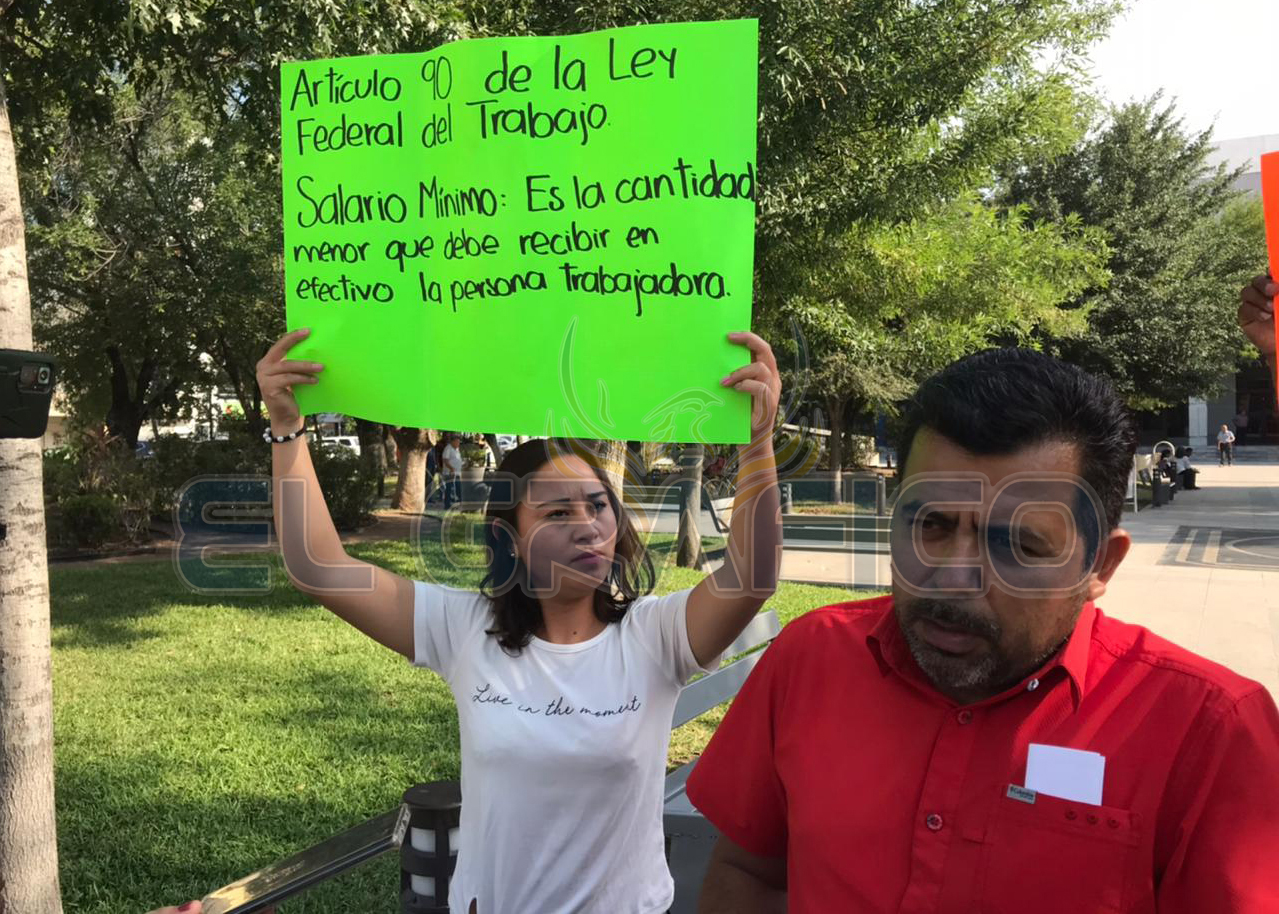 Artículo 90 de la Ley
Federal del Trabajo.
Salario Mínimo: Es la cantidad
menor que debe recibir en
efectivo la persona trabajadora.
EL GRAFICO
Live in the moment
Columbia